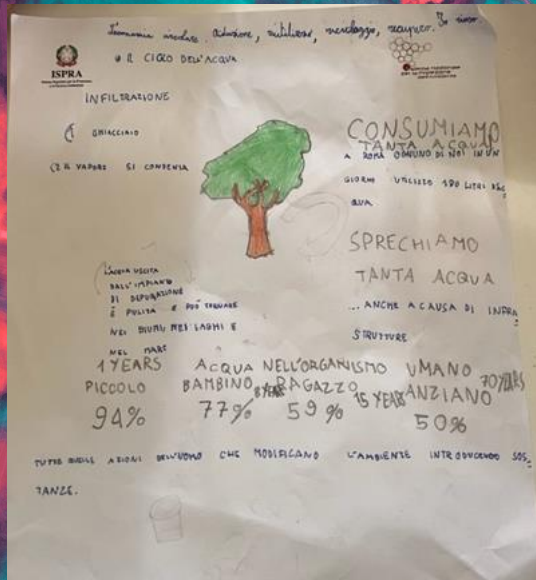 L'economia circolare. riduzione, riutilizzo, riciclaggio, recupero. Io riuso.
IL CICLO DELL'ACQUA
ISPRA
INFILTRAZIONE
GHIACCIAIO
IL VAPORE SI CONDENSA
CONSUMIAMO
TANTA ACQUA
A ROMA OGNUNO DI NOI IN UN
GIORNO UTILIZZO 190 LITRI D'AC
QUA.
SPRECHIAMO
TANTA ACQUA
... ANCHE A CAUSA DI INFRA
STRUTTURE
L'ACQUA USCITA
DALL'IMPIANTO
DI DEPURAZIONE
È PULITA E PUÒ TORNARE
NEI FIUMI, NEI LAGHI E
NEL MARE
1 YEARS ACQUA NELL'ORGANISMO UMANO
PICCOLO BAMBINO 8 YEAR RAGAZZO 15 YEAR ANZIANO 70 YEARS
94% 77% 59% 50%
TUTTE QUELLE AZIONI DELL'UOMO CHE MODIFICANO L'AMBIENTE INTRODUCENDO SOS
TANZE.